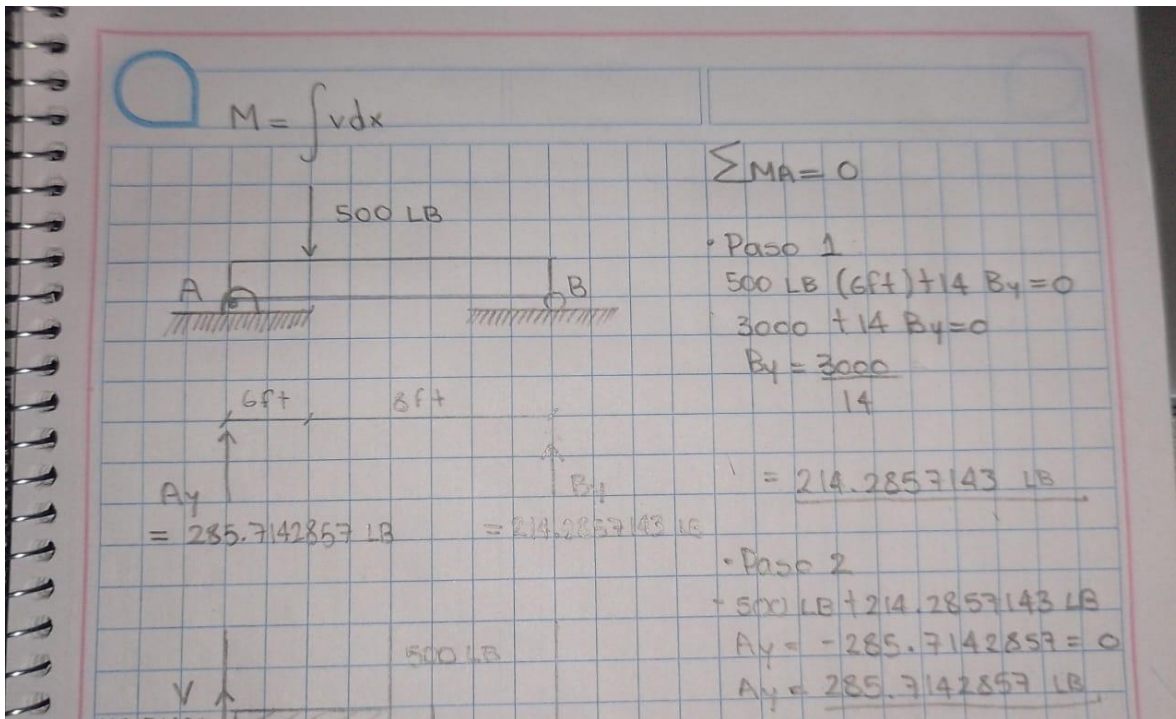 M = ∫vdx
500 LB
A
B
6ft
8ft
Ay
= 285.7142857 LB
By
= 214.2857143 LB
500 LB
V
ΣMA = 0
· Paso 1
500 LB (6ft) + 14 By = 0
3000 + 14 By = 0
By = 3000
14
= 214.2857143 LB
· Paso 2
- 500 LB + 214.2857143 LB
Ay = -285.7142857 = 0
Ay = 285.7142857 LB